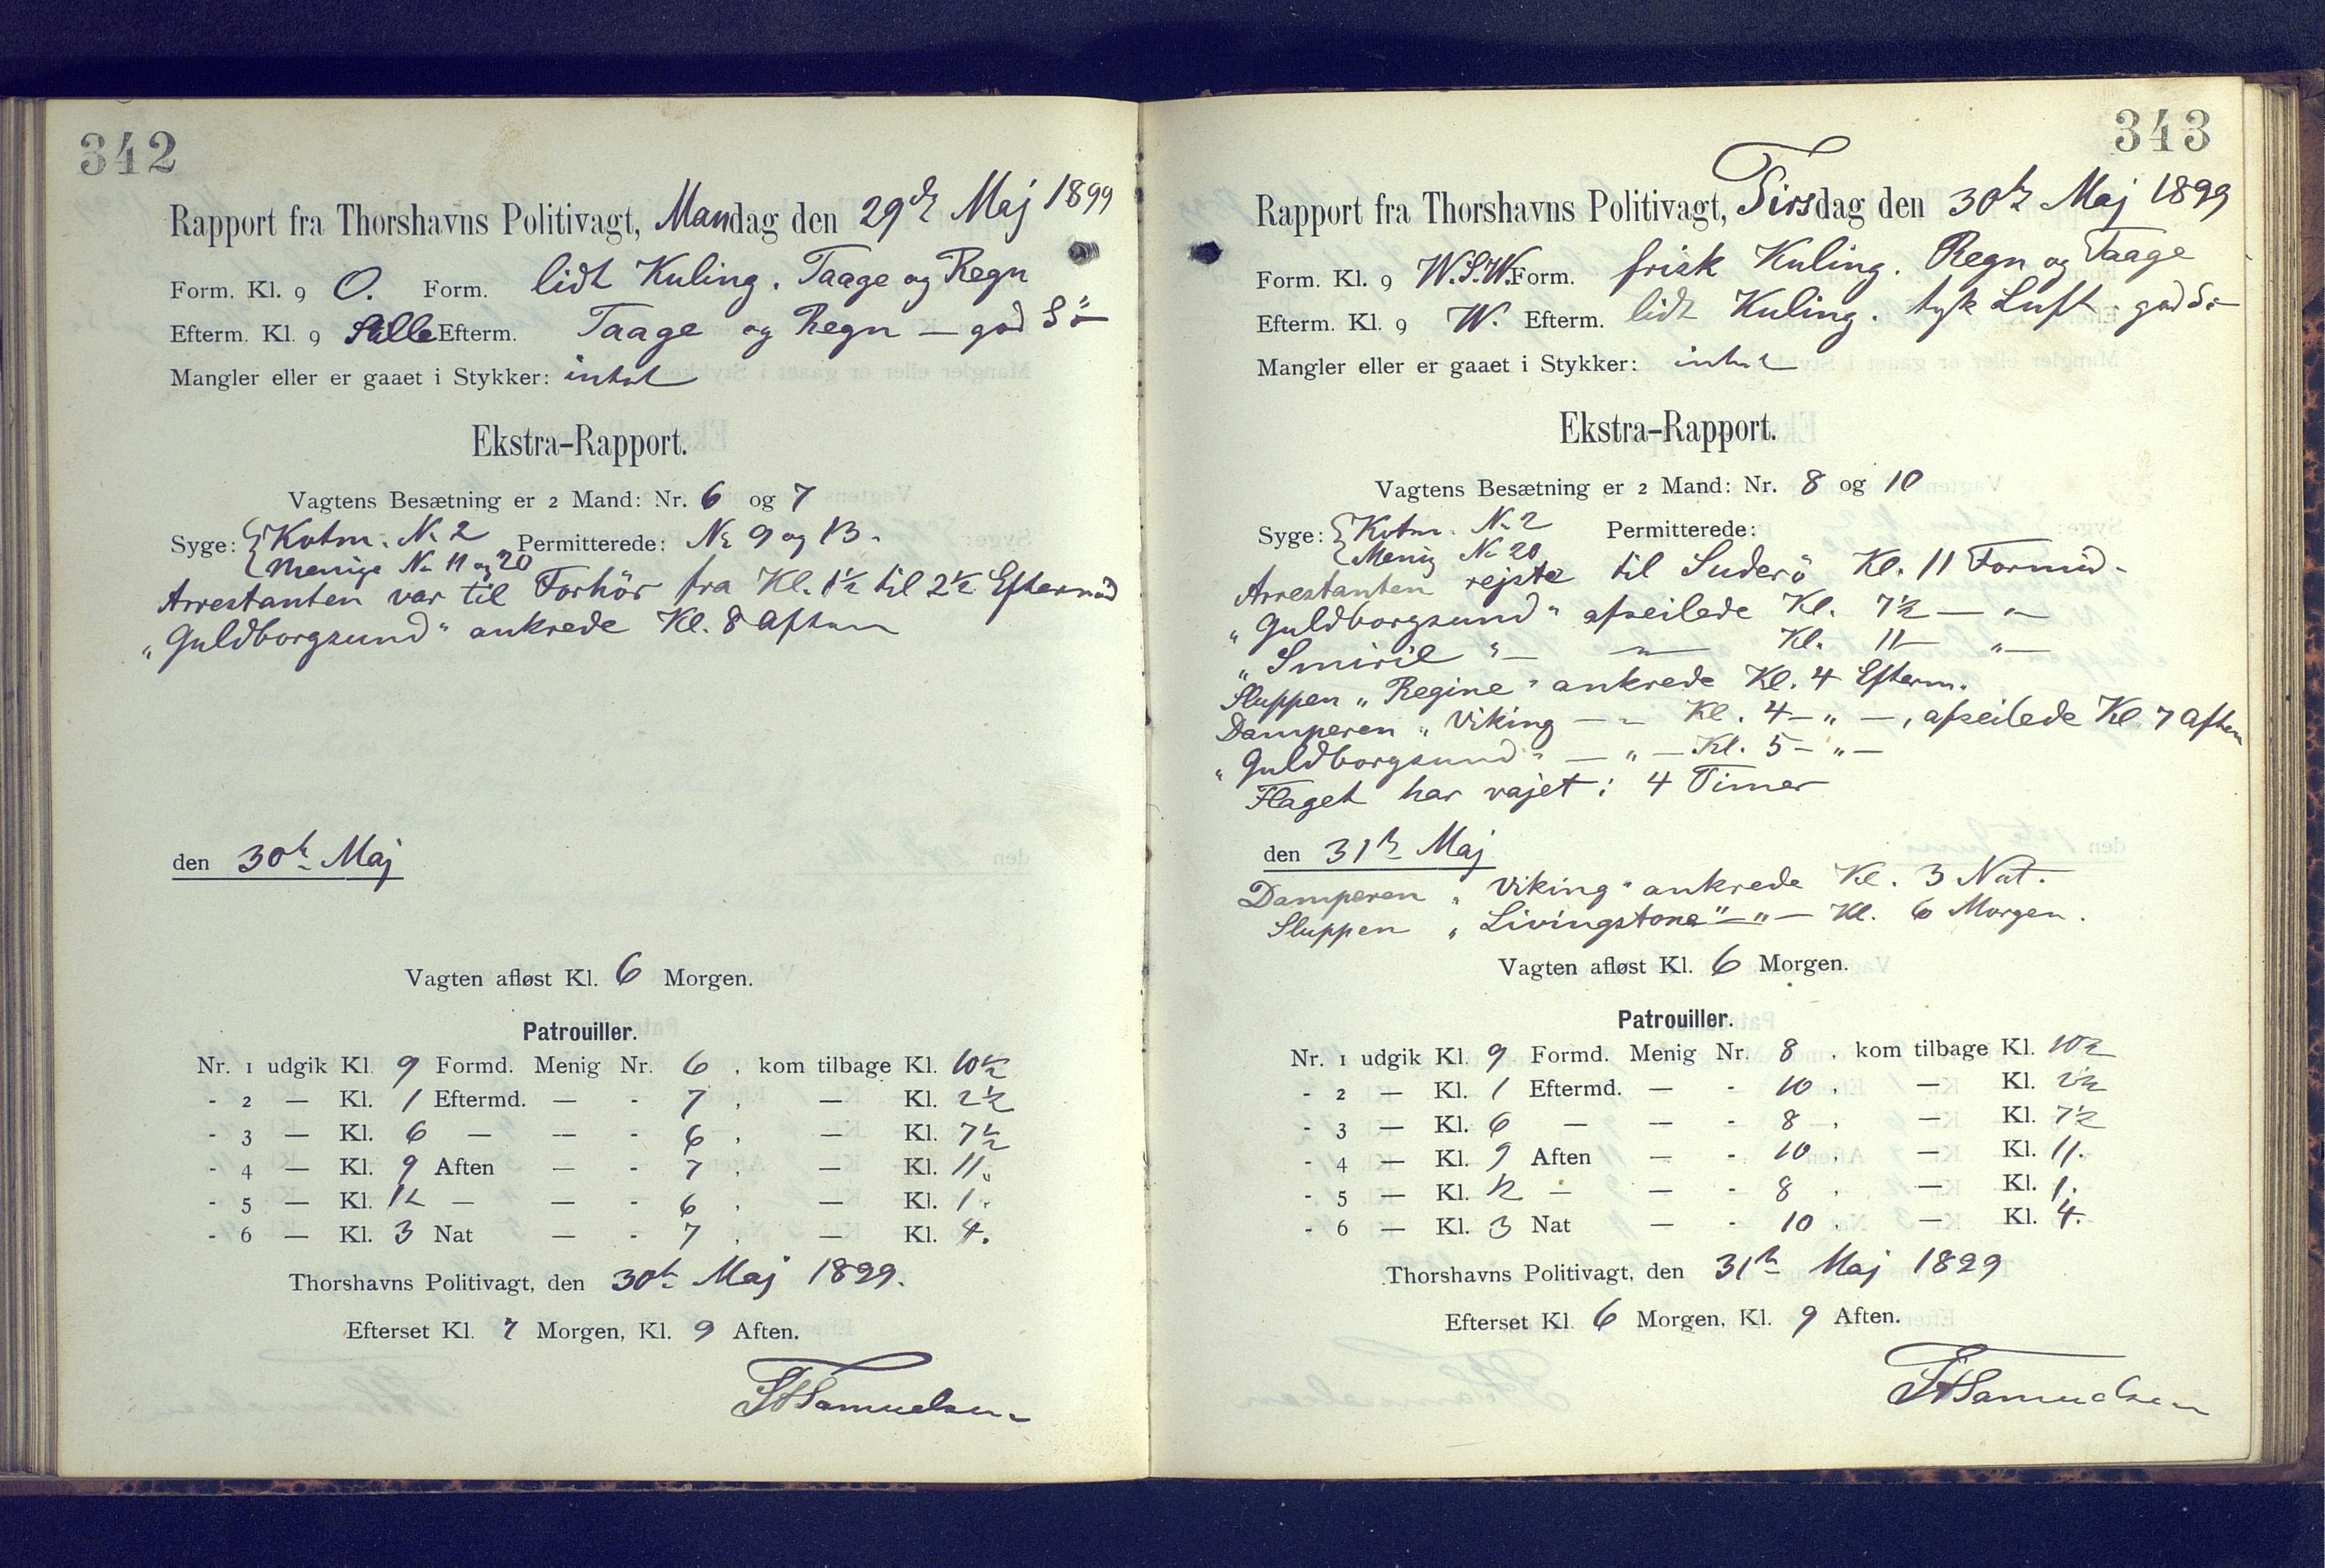 342
Rapport fra Thorshavns Politivagt, Mandag den 29de Maj 1899
Form. Kl. 9 O. Form. lidt Kuling. Taage og Regn
Efterm. Kl. 9 Stille Efterm. Taage og Regn — god Sö
Mangler eller er gaaet i Stykker: intet
Ekstra-Rapport.
Vagtens Besætning er 2 Mand: Nr. 6 og 7
Syge: Kotm. No 2 Permitterede: No 9 og 13.
Menige No 11 og 20
Arrestanten var til Forhör fra Kl. 1½ til 2½ Eftermid
„Guldborgsund" ankrede Kl. 8 Aften
den 30te Maj
Vagten afløst Kl. 6 Morgen.
Patrouiller.
Nr. 1 udgik Kl. 9 Formd. Menig Nr. 6, kom tilbage Kl. 10½
- 2 — Kl. 1 Eftermd. — - 7, — Kl. 2½
- 3 — Kl. 6 — — - 6, — Kl. 7½
- 4 — Kl. 9 Aften — - 7, — Kl. 11.
- 5 — Kl. 12 — — - 6, — Kl. 1.
- 6 — Kl. 3 Nat — - 7, — Kl. 4.
Thorshavns Politivagt, den 30te Maj 1899.
Efterset Kl. 7 Morgen, Kl. 9 Aften.
Samuelsen
343
Rapport fra Thorshavns Politivagt, Tirsdag den 30te Maj 1899
Form. Kl. 9 W.S.W. Form. frisk Kuling. Regn og Taage
Efterm. Kl. 9 W. Efterm. lidt Kuling. tyk Luft - god Sö
Mangler eller er gaaet i Stykker: intet
Ekstra-Rapport.
Vagtens Besætning er 2 Mand: Nr. 8 og 10
Syge: Kotm. No 2 Permitterede:
Menig No 20
Arrestanten rejste til Suderö Kl. 11 Formid.
„Guldborgsund" afseilede Kl. 7½ — „ —
„Smiril" — „ — Kl. 11 — „ —
Sluppen „Regine" ankrede Kl. 4 Efterm.
Damperen „Viking — „ Kl. 4 — „ —, afseilede Kl. 7 Aften
„Guldborgsund" — „ — Kl. 5 — „ —
Flaget har vajet i 4 Timer
den 31te Maj
Damperen „Viking" ankrede Kl. 3 Nat.
Sluppen „Livingstone" — „ — Kl. 6 Morgen.
Vagten afløst Kl. 6 Morgen.
Patrouiller.
Nr. 1 udgik Kl. 9 Formd. Menig Nr. 8, kom tilbage Kl. 10½
- 2 — Kl. 1 Eftermd. — - 10, — Kl. 2½
- 3 — Kl. 6 — — - 8, — Kl. 7½
- 4 — Kl. 9 Aften — - 10, — Kl. 11.
- 5 — Kl. 12 — — - 8, — Kl. 1.
- 6 — Kl. 3 Nat — - 10, — Kl. 4.
Thorshavns Politivagt, den 31te Maj 1899
Efterset Kl. 6 Morgen, Kl. 9 Aften.
Samuelsen